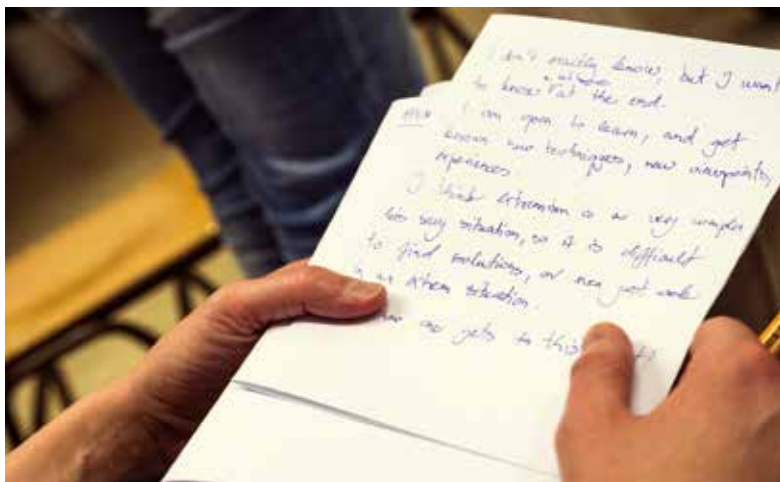 I don't exactly know, but I want
to know at the end.
I am open to learn, and get
known new techniques, new viewpoints,
experiences
I think extremism is a very complex
situation, so it is difficult
to find solutions, or even just work
in an extrem situation.
one gets to this